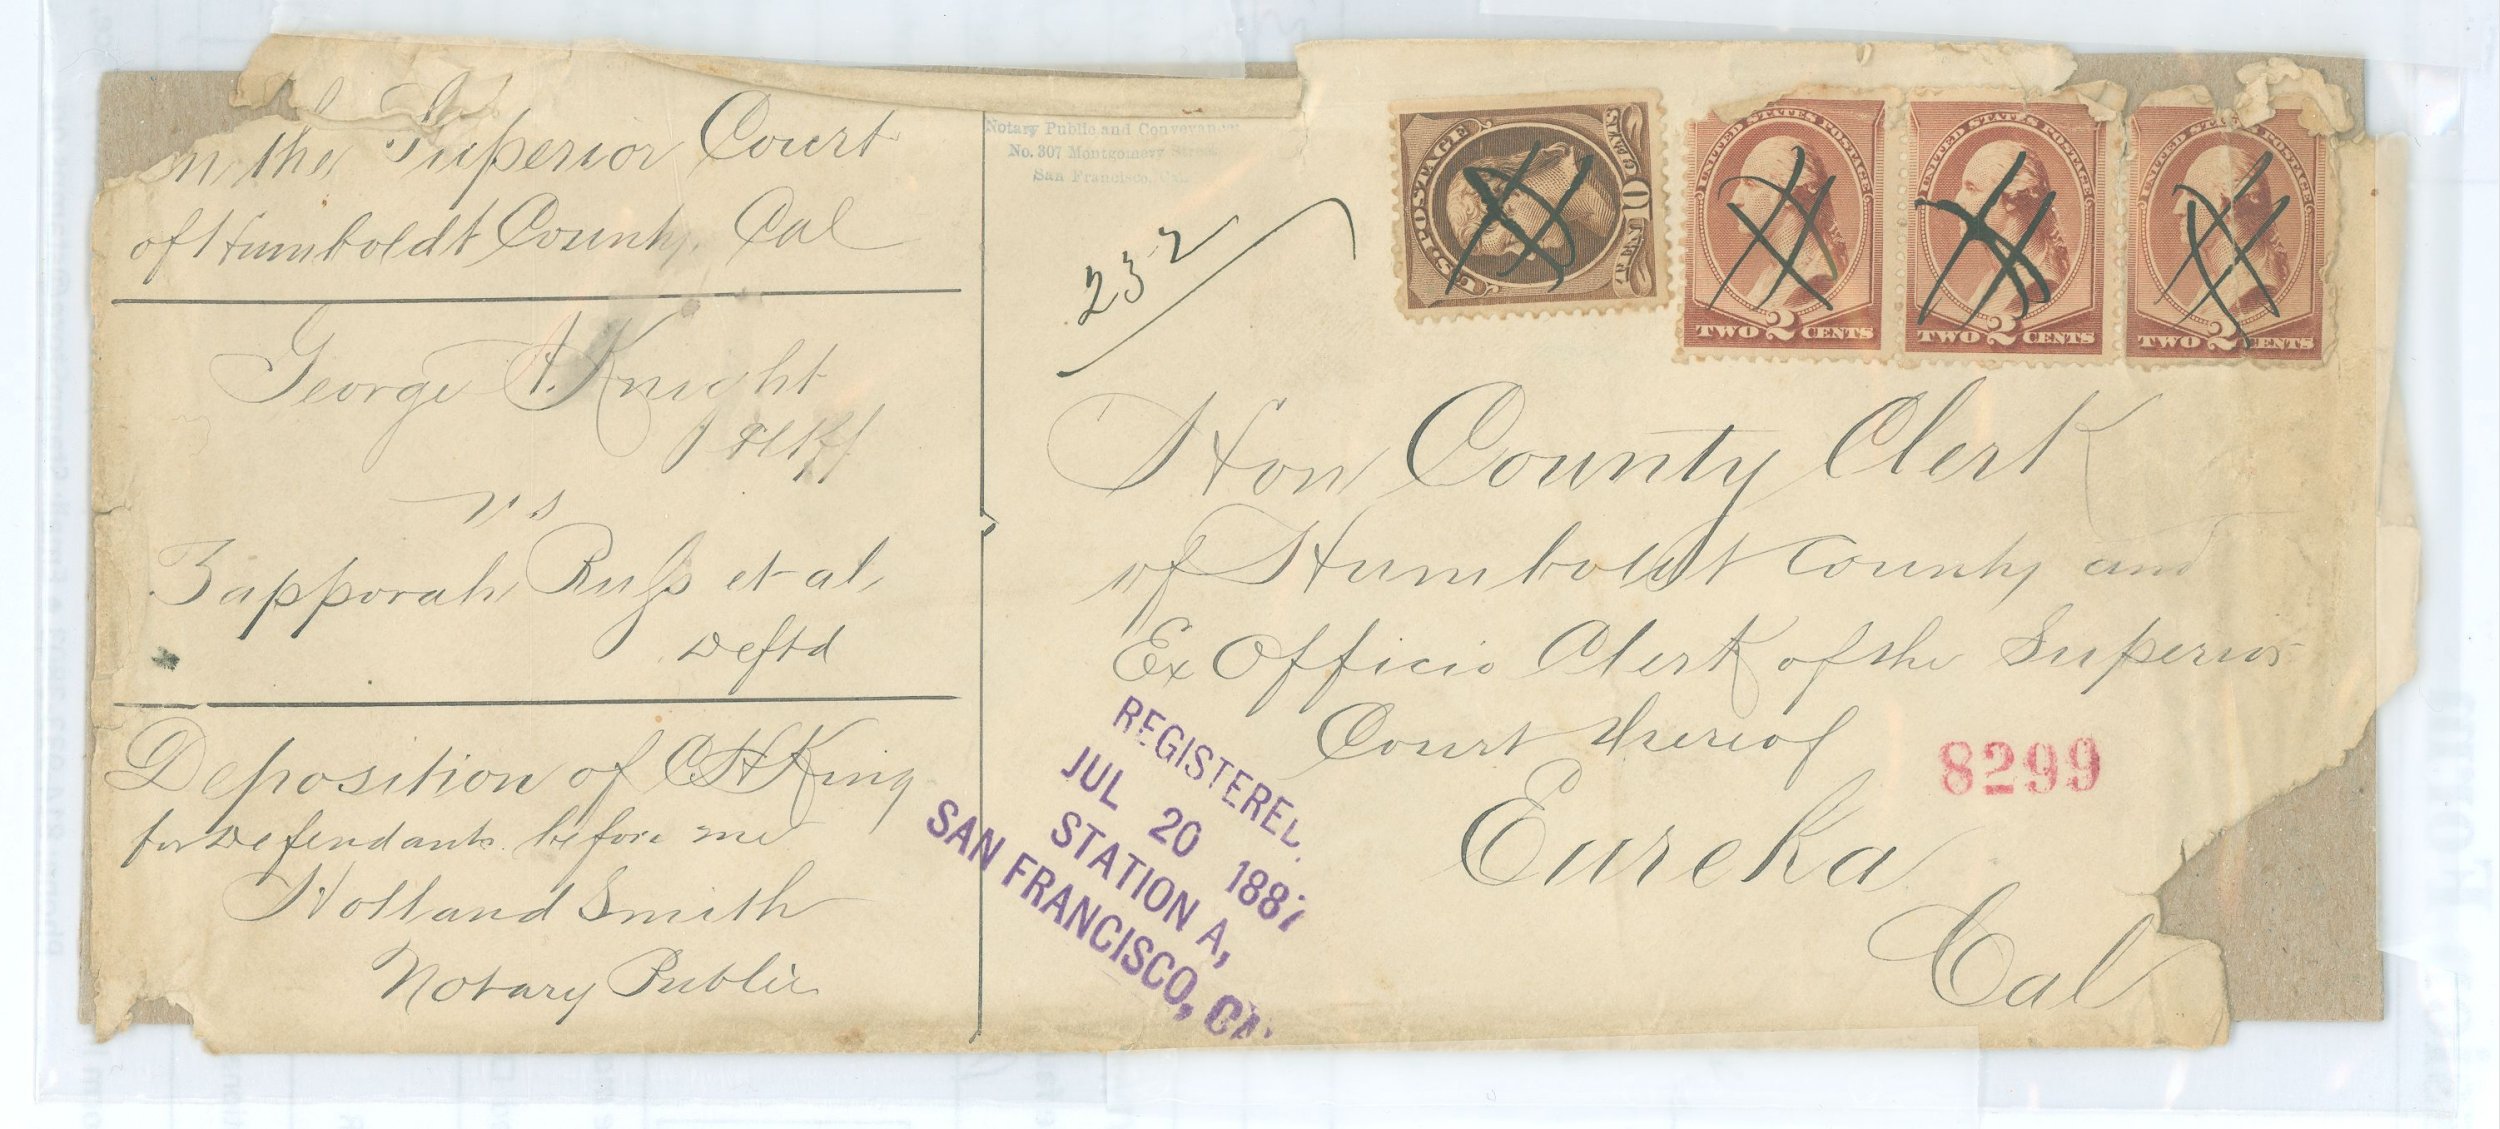 In the Superior Court
of Humboldt County, Cal
George A. Knight
Pltff
vs
Zapporah Russ et al,
Deftd
Deposition of C H King
for Defendants before me
Holland Smith
Notary Public
Notary Public and Conveyancer
No. 307 Montgomery Street
San Francisco, Cal.
232
U.S. POSTAGE
10 CENTS
UNITED STATES POSTAGE
TWO 2 CENTS
UNITED STATES POSTAGE
TWO 2 CENTS
UNITED STATES POSTAGE
TWO 2 CENTS
Hon County Clerk
of Humboldt County and
Ex Officio Clerk of the Superior
Court thereof
Eureka
Cal
8299
REGISTERED,
JUL 20 1887
STATION A,
SAN FRANCISCO, CAL